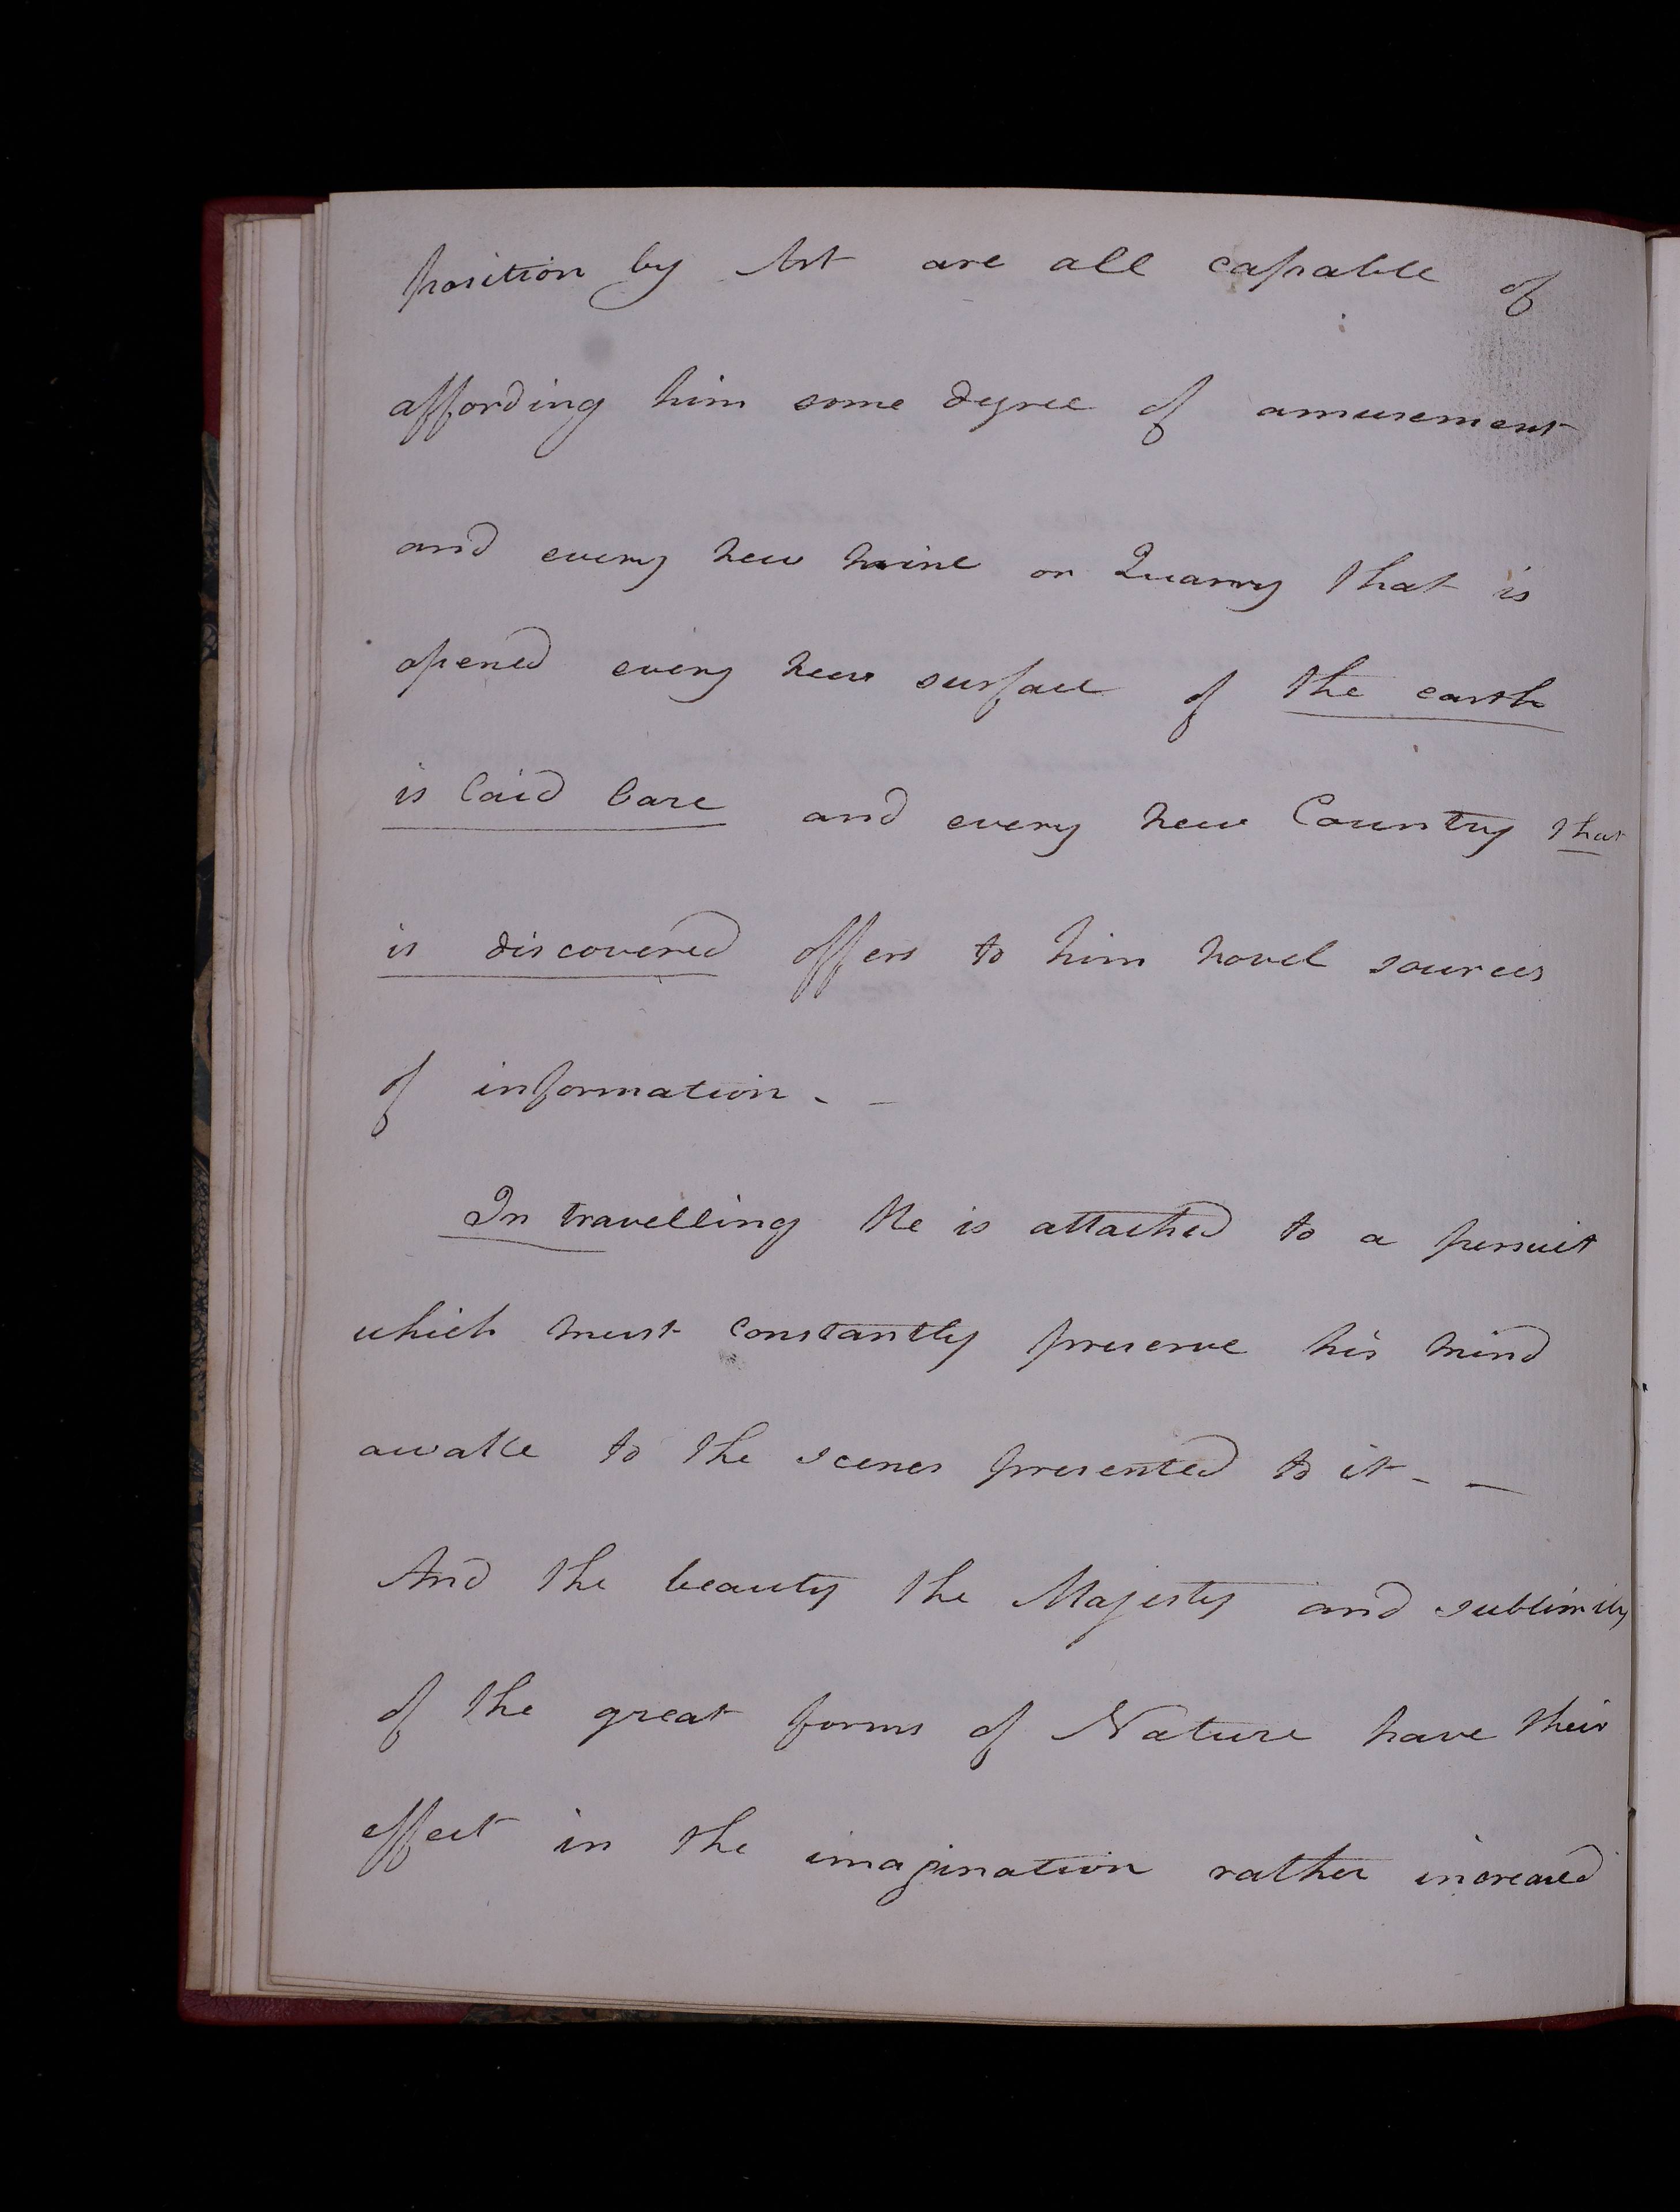 position by Art are all capable of
affording him some degree of amusement
and every new mine or Quarry that is
opened every new surface of the earth
is laid bare and every new Country that
is discovered offers to him novel sources
of information. -
In travelling He is attached to a pursuit
which must constantly preserve his mind
awake to the scenes presented to it - -
And the beauty the Majesty and sublimity
of the great forms of Nature have their
effect in the imagination rather increased